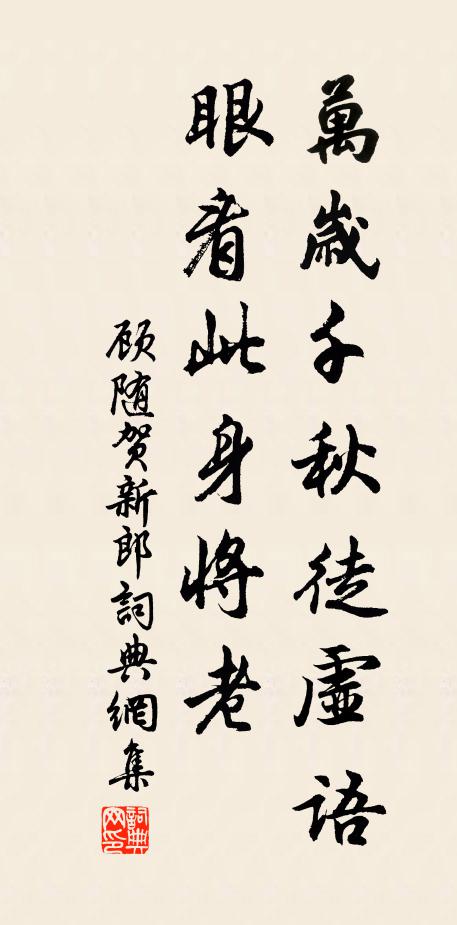 萬歲千秋徒虛語
眼看此身將老
顾随贺新郎詞典網集
詞典网印